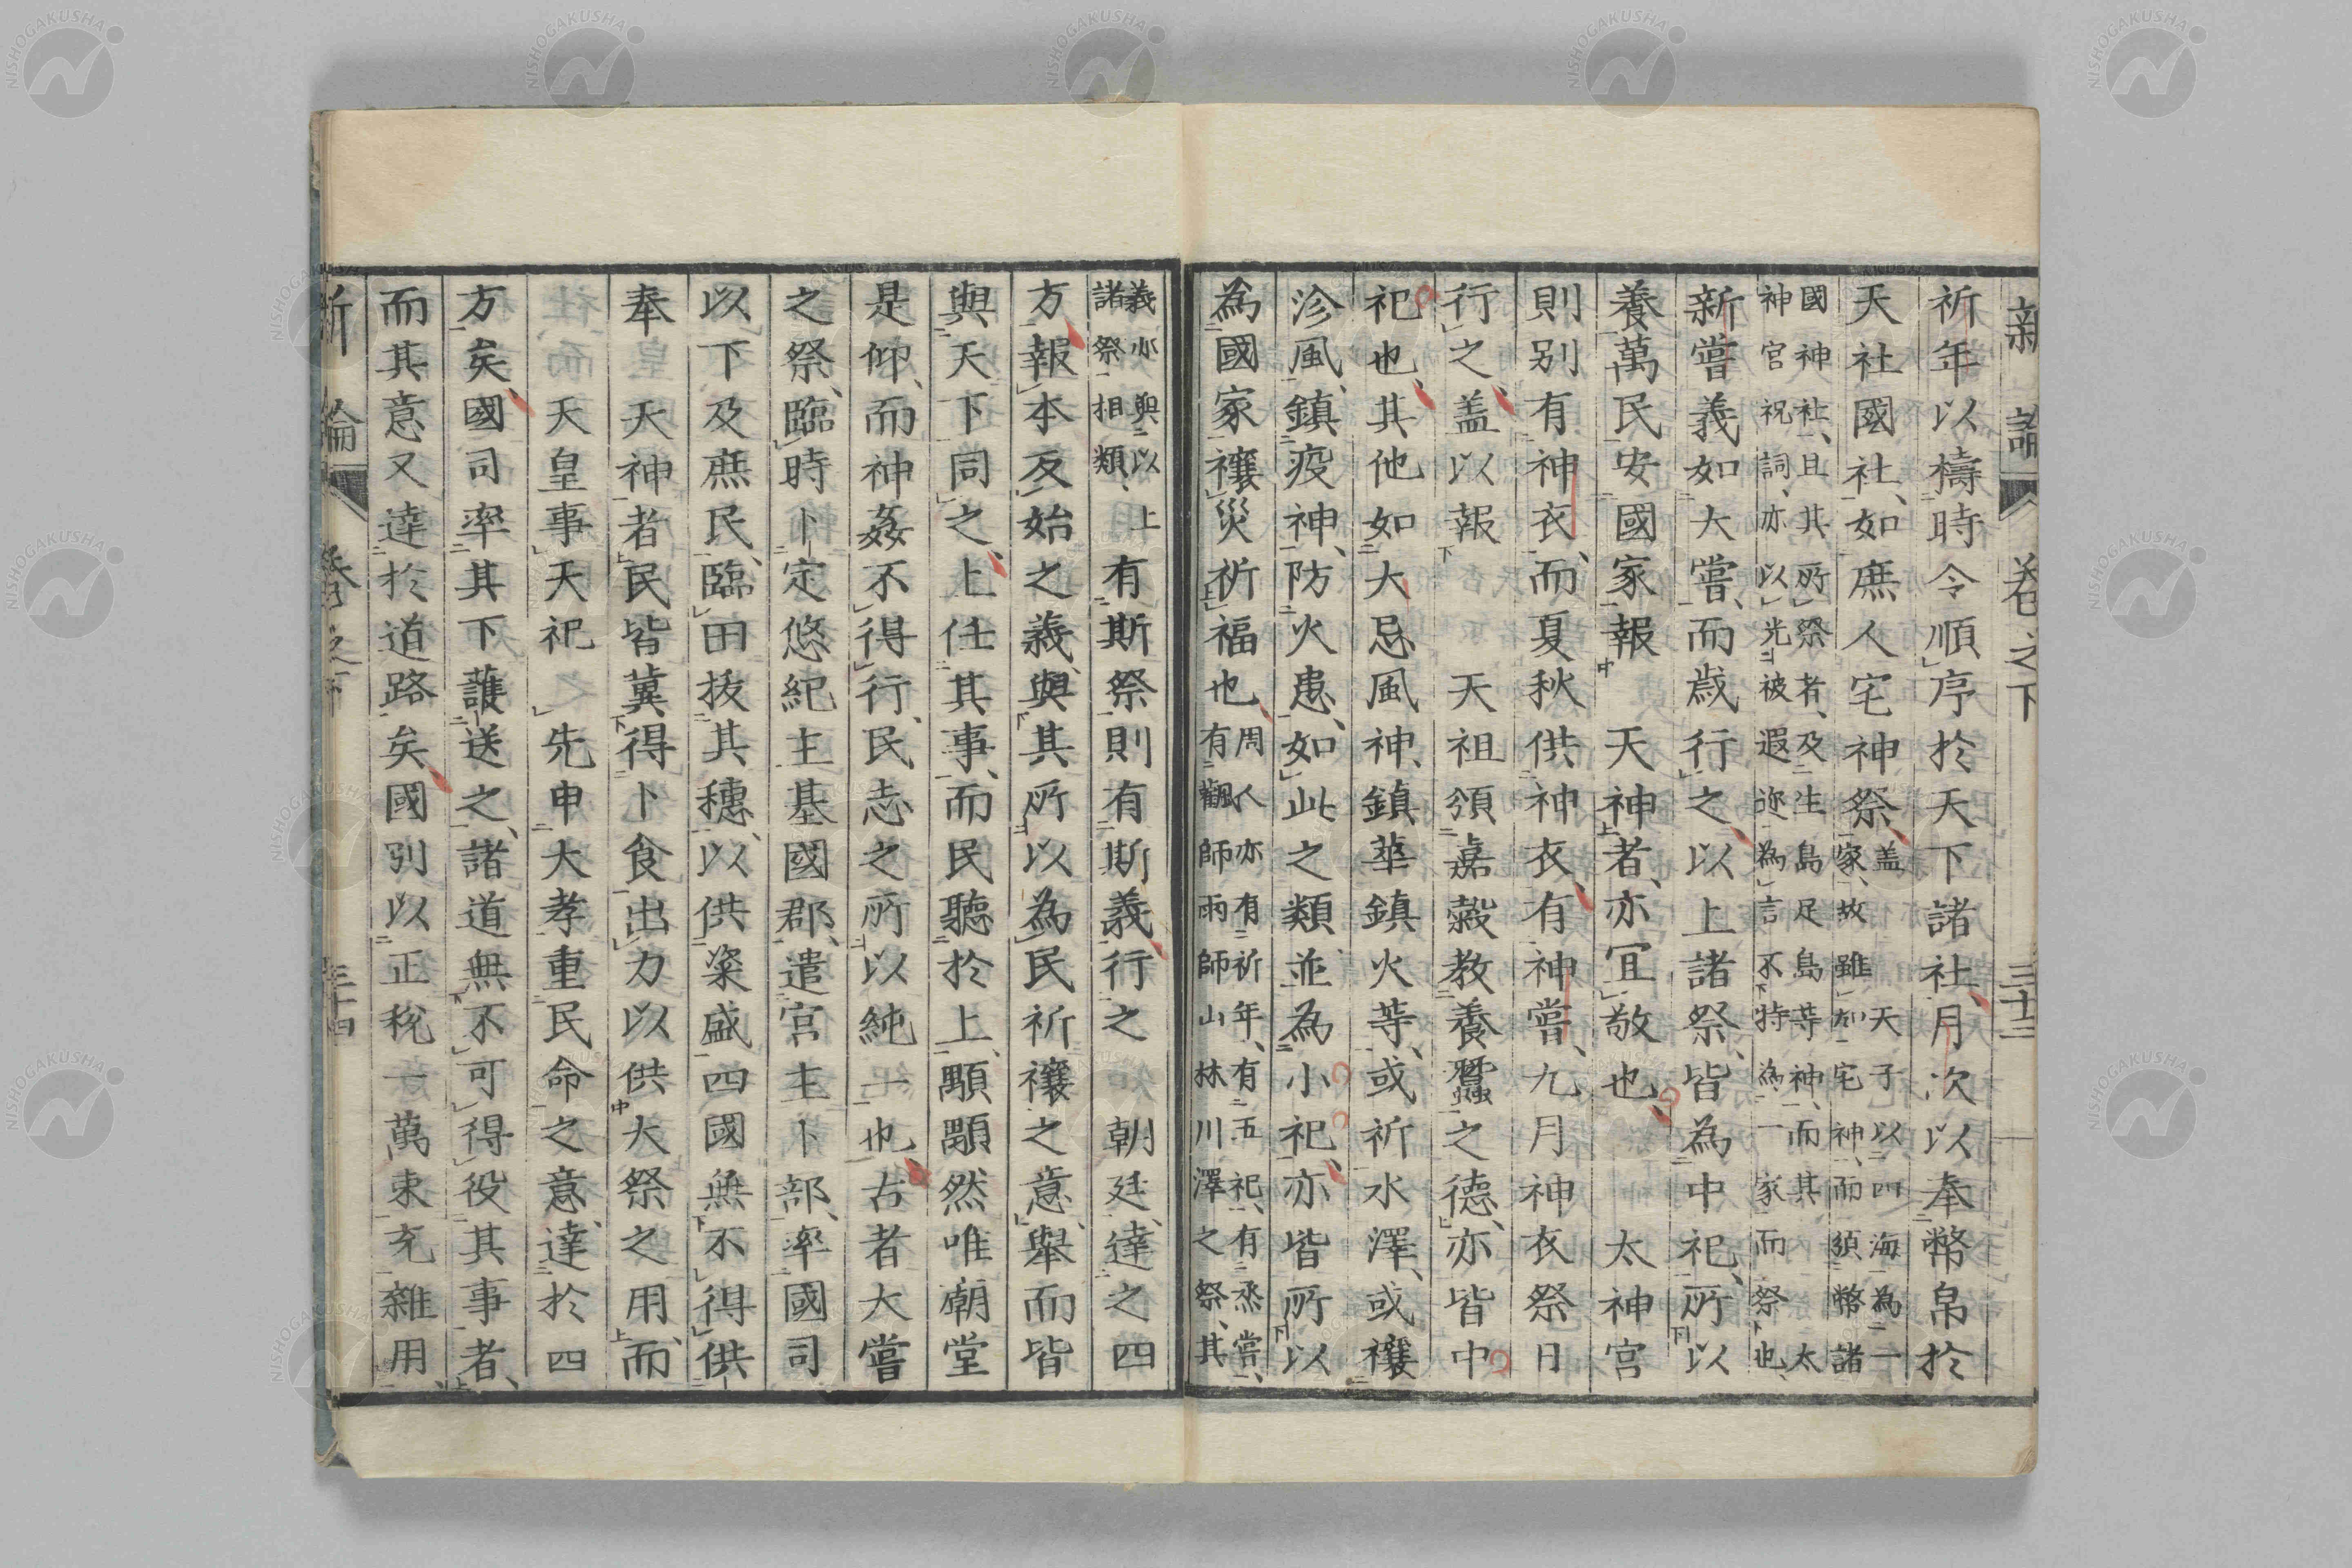 新論 卷之下 三十三
祈年以禱時令順序於天下諸社、月次以奉幣帛於
天社國社、如庶人宅神祭、盖 天子以四海為一
家、故雖如宅神、而須幣諸
國神社、且其所祭者、及生島足島等神、而其 太
神宮祝詞、亦以光被遐迩為言、不特為一家而祭也、
新嘗義如大嘗、而歳行之、以上諸祭、皆為中祀、所以
養萬民安國家、報 天神者、亦宜敬也、 太神宮
則別有神衣、而夏秋供神衣、有神嘗、九月神衣祭日
行之、盖以報 天祖領嘉穀教養蠶之德、亦皆中
祀也、其他如大忌風神、鎮華鎮火等、或祈水澤、或禳
沴風、鎮疫神、防火患、如此之類並為小祀、亦皆所以
為國家禳災祈福也、周人亦有祈年、有五祀、有烝嘗、
有觀師雨師山林川澤之祭、其
義亦與以上
諸祭相類、
有斯祭則有斯義、行之 朝廷、達之四
方、報本反始之義、與其所以為民祈禳之意、舉而皆
與天下同之、上任其事、而民聽於上、顒顒然唯廟堂
是仰、而神姦不得行、民志之所以純一也、古者大嘗
之祭、臨時卜定悠紀主基國郡、遣宮主卜部、率國司
以下及庶民、臨田抜其穗、以供粢盛、四國無不得供
奉 天神者、民皆冀得卜食出力以供大祭之用、而
天皇事天祀先、申大孝重民命之意、達於四
方矣、國司率其下護送之、諸道無不可得役其事者、
而其意又達於道路矣、國別以正稅一萬束充雜用、
新論 卷之下 三十四